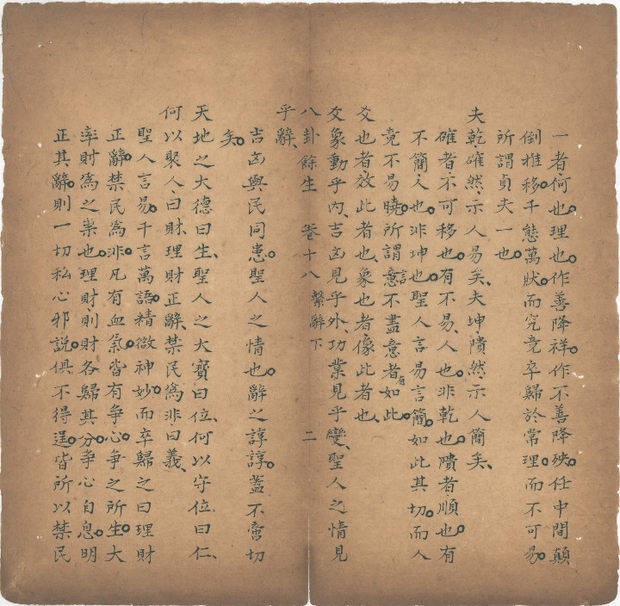 一者何也。理也。作善降祥。作不善降殃。任中間顛
倒推移。千態萬狀。而究竟卒歸於常理。而不可易。
所謂貞夫一也。
夫乾確然、示人易矣、夫坤隤然、示人簡矣、
確者不可移也。有不易、人也。非乾也。隤者順也。有
不簡、人也。非坤也。聖人言易言簡。如此其切。而人
竟不易曉。所謂意言不盡意者。有如此。
爻也者、效此者也、象也者、像此者也、
爻象動乎內、吉凶見乎外、功業見乎變、聖人之情見
八卦餘生 卷十八 繫辭下 二
乎辭、
吉凶與民同患。聖人之情也。辭之諄諄。蓋不啻切
矣。
天地之大德曰生、聖人之大寶曰位、何以守位、曰仁、
何以聚人、曰財、理財正辭、禁民為非、曰義、
聖人言易。千言萬語。精微神妙。而卒歸之曰理財
正辭。禁民為非。凡有血氣。皆有爭心。爭之所生。大
率財為之祟也。理財。則財各歸其分。爭心自息。明
正其辭。則一切私心邪說。俱不得逞。皆所以禁民